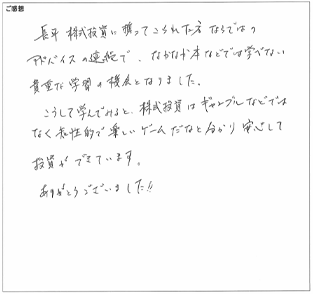 ご感想
長年 株式投資に携ってこられた方ならではの
アドバイスの連続で、なかなか本などでは学べない
貴重な学習の機会となりました。
こうして学んでみると、株式投資はギャンブルなどでは
なく知性的で楽しいゲームだなと分かり 安心して
投資ができています。
ありがとうございました!!